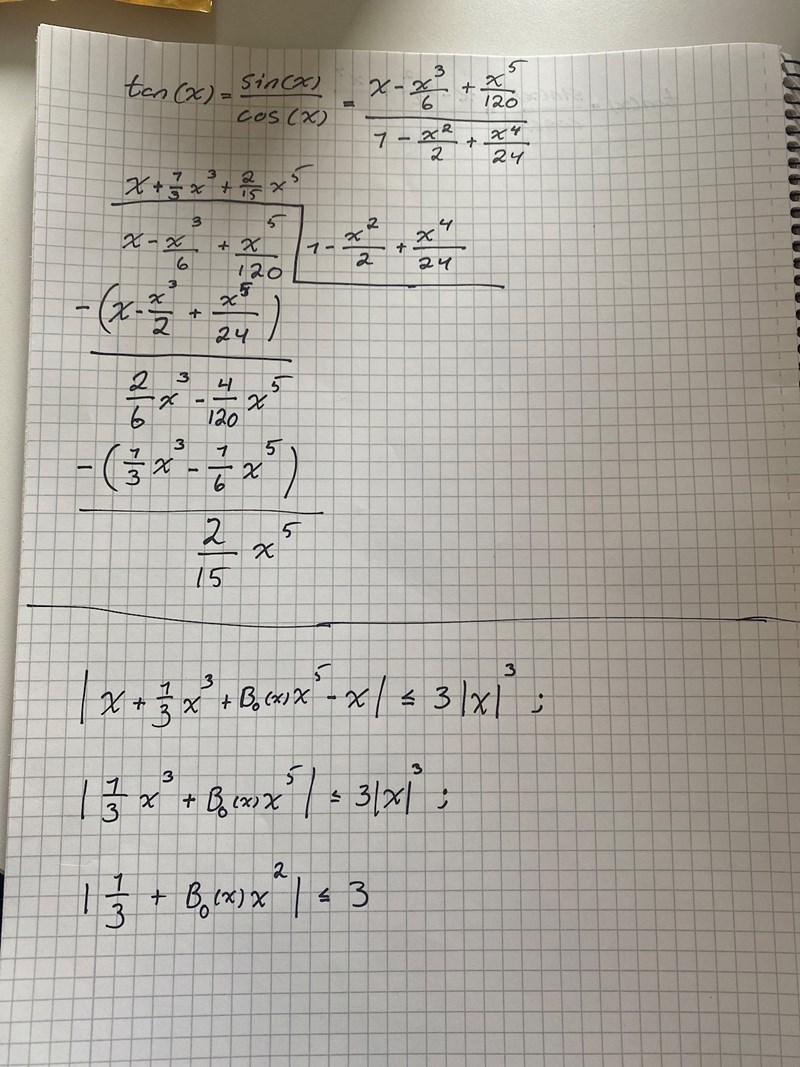 tan(x) = sin(x)/cos(x) = (x - x³/6 + x⁵/120)/(1 - x²/2 + x⁴/24)
x + 1/3 x³ + 2/15 x⁵
x - x³/6 + x⁵/120 | 1 - x²/2 + x⁴/24
-(x - x³/2 + x⁵/24)
2/6 x³ - 4/120 x⁵
-(1/3 x³ - 1/6 x⁵)
2/15 x⁵
|x + 1/3 x³ + B₀(x)x⁵ - x| ≤ 3|x|³ ;
|1/3 x³ + B₀(x)x⁵| ≤ 3|x|³ ;
|1/3 + B₀(x)x²| ≤ 3